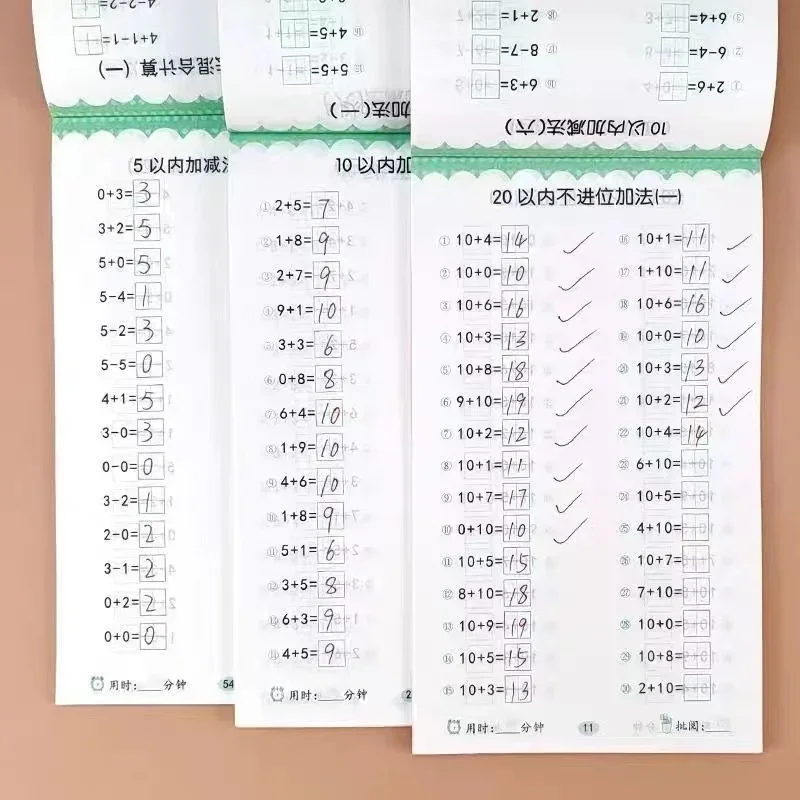 4-2-2
4+1-1=
混合计算(一)
4+5=
⑯
5+5=
⑮
加法(一)
③ 6+4=
② 6-4=
① 2+6=
⑱ 2+1=
⑰ 8-7=
⑯ 6+3=
10以内加减法(六)
5以内加减法
0+3=3
3+2=5
5+0=5
5-4=1
5-2=3
5-5=0
4+1=5
3-0=3
0-0=0
3-2=1
2-0=2
3-1=2
0+2=2
0+0=0
用时:___分钟
54
10以内加
① 2+5=7
② 1+8=9
③ 2+7=9
④ 9+1=10
⑤ 3+3=6
⑥ 0+8=8
⑦ 6+4=10
⑧ 1+9=10
⑨ 4+6=10
⑩ 1+8=9
⑪ 5+1=6
⑫ 3+5=8
⑬ 6+3=9
⑭ 4+5=9
用时:___分钟
2
20以内不进位加法(一)
① 10+4=14 ✓
② 10+0=10 ✓
③ 10+6=16 ✓
④ 10+3=13 ✓
⑤ 10+8=18 ✓
⑥ 9+10=19 ✓
⑦ 10+2=12 ✓
⑧ 10+1=11 ✓
⑨ 10+7=17 ✓
⑩ 0+10=10 ✓
⑪ 10+5=15
⑫ 8+10=18
⑬ 10+9=19
⑭ 10+5=15
⑮ 10+3=13
⑯ 10+1=11 ✓
⑰ 1+10=11 ✓
⑱ 10+6=16 ✓
⑲ 10+0=10 ✓
⑳ 10+3=13 ✓
㉑ 10+2=12 ✓
㉒ 10+4=14
㉓ 6+10=
㉔ 10+5=
㉕ 4+10=
㉖ 10+7=
㉗ 7+10=
㉘ 10+0=
㉙ 10+8=
㉚ 2+10=
用时:___分钟
11
批阅:___